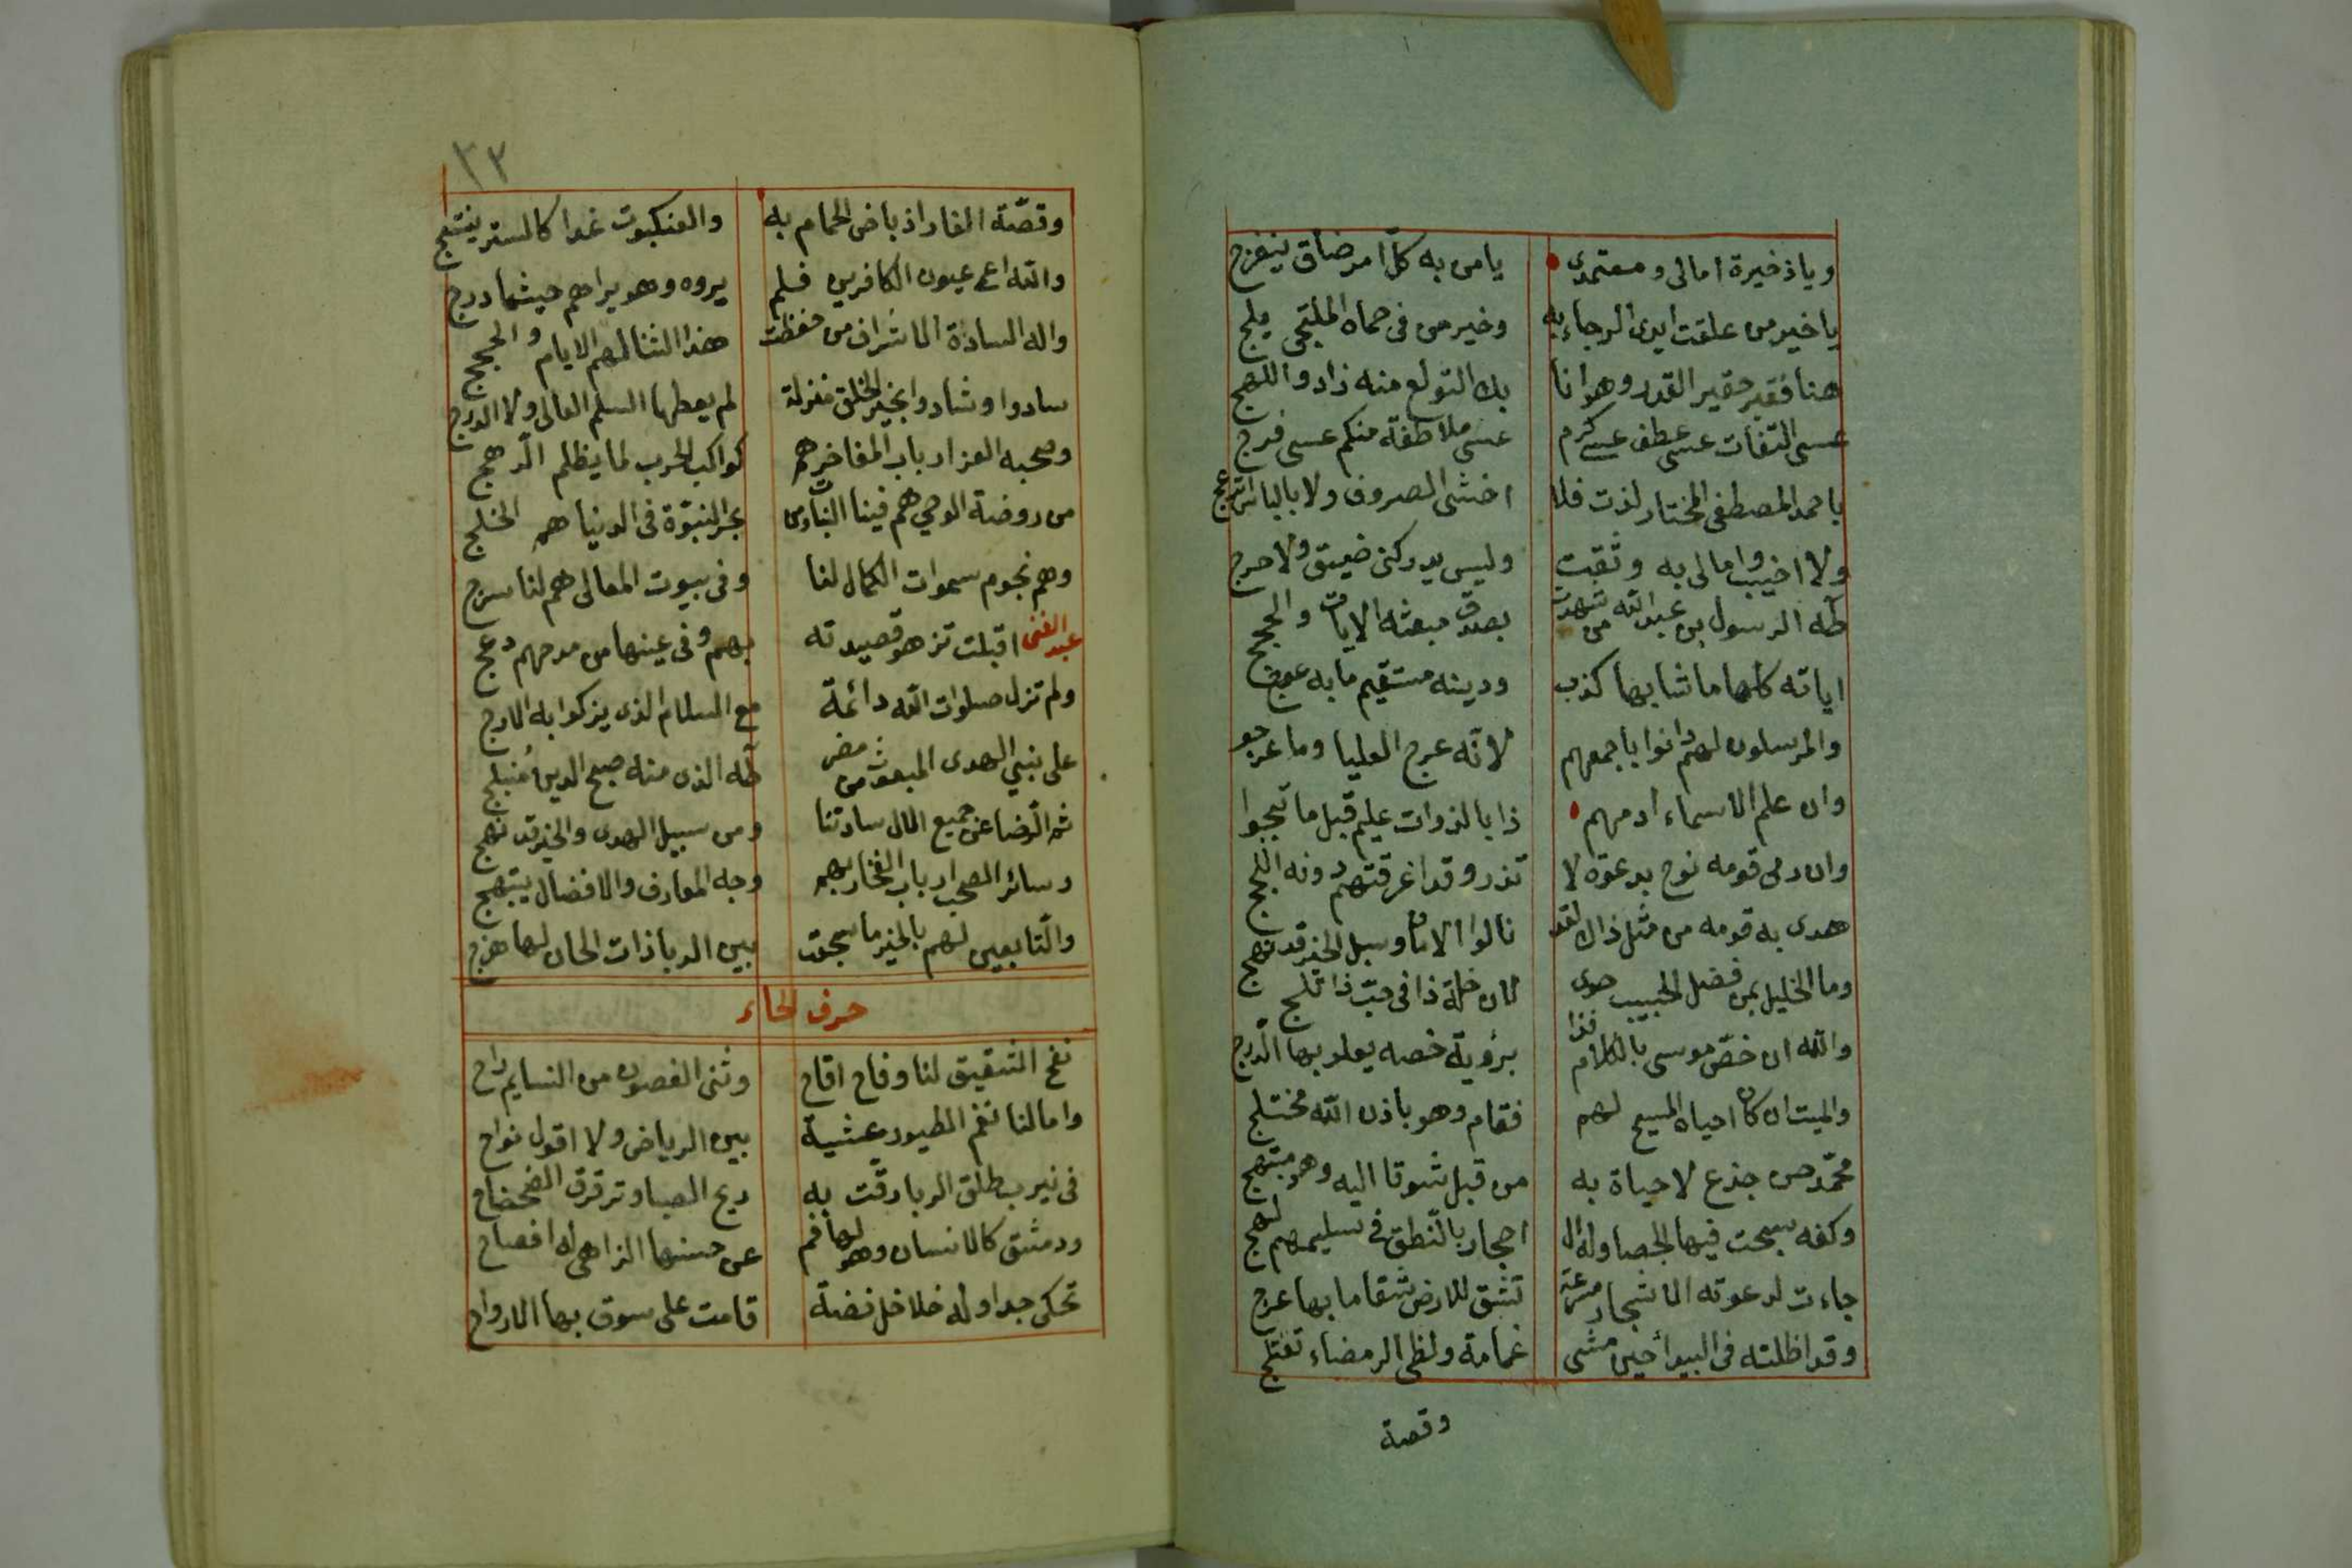 وياذخيرة امالى ومعتمدى يامن به كلّ امر ضاق ينفرج
ياخير من علقت ايدى الرجاء به وخير من فى حماه الملتجى يلج
هنا فقير حقير القدر وهو انا بك التولع منه زاد واللهج
عسى التفات عسى عطف عسى كرم عسى ملاطفة منكم عسى فرج
باحمد المصطفى المختار لذت فلا اخشى الصروف ولا بالباس انزعج
ولا اخيب وامالى به وثقت وليس يدركنى ضيق ولا حرج
طه الرسول بن عبد الله من شهدت بصدق مبعثه الايات والحجج
اياته كلها ما شابها كذب ودينه مستقيم ما به عوج
والمرسلون لهم دانوا باجمعهم لانه عرج العليا وما عرجو
وان علم الاسماء ادمهم ذا بالذوات عليم قبل ما
وان رمى قومه نوح بدعوة لا تذر وقد اغرقتهم دونه اللجج
هدى به قومه من مثل ذاك لقد نالوا الامان وسبل الخير قد نهج
وما الخليل بمن فضل الحبيب حوى لان خلة ذا فى حبّ ذا تلج
والله ان خصّ موسى بالكلام فذا برؤية خصه يعلو بها الدرج
والميت ان كان احياه المسيح لهم فقام وهو باذن الله مختلج
محمّد حن جذع لا حياة به من قبل شوقا اليه وهو مبتهج
وكفه سبحت فيها الحصا وله ال احجار بالنطق فى تسليمهم لهج
جاءت لدعوته الاشجار مسرعة تشق للارض شقا ما بها عرج
وقد اظلته فى البيدأ حين مشى غمامة ولظى الرمضاء تعتلج
وقصة
٣٢
وقصّة الغار اذ باض الحمام به والعنكبوت غدا كالستر ينتسج
والله اعمى عيون الكافرين فلم يروه وهو يراهم حيثما درج
واله السادة الاشراف من حفظت هذا الثنا لهم الايام والحجج
سادوا وشادوا بخير الخلق منزلة لم يعطها السلم العالى ولا الدرج
وصحبه الغر ارباب المفاخر هم كواكب الحرب لما يظلم الرهج
من روضة الوحى هم فينا النبات ومن بحر النبوّة فى الدنيا هم الخلج
وهم نجوم سموات الكمال لنا وفى بيوت المعالى هم لنا سرج
عبد الغنى اقبلت تزهو قصيدته بهم وفى عينها من مدحهم دعج
ولم تزل صلوات الله دائمة مع السلام الذى يزكوا به الارج
على نبي الهدى المبعوث من مضر طه الذى منه صبح الدين مُنبلج
ثم الرضا عن جميع الال سادتنا ومن سبيل الهدى والخير قد نهج
وسائر الصحب ارباب الفخار بهم وجه المعارف والافضال يبتهج
والتابعين لهم بالخير ما سجعت بين الربا ذات الحان لها هزج
حرف الحاء
نفح الشقيق لنا وفاح اقاح وثنى الغصون من النسايم راح
وامالنا نغم الطيور عشية بين الرياض ولا اقول نواح
فى نيرب طلق الربا رقّت به ريح الصبا وترقرق الضحضاح
ودمشق كالانسان وهو لها فم عن حسنها الزاهى له افصاح
تحكى جداوله خلاخل فضة قامت على سوق بها الارواح